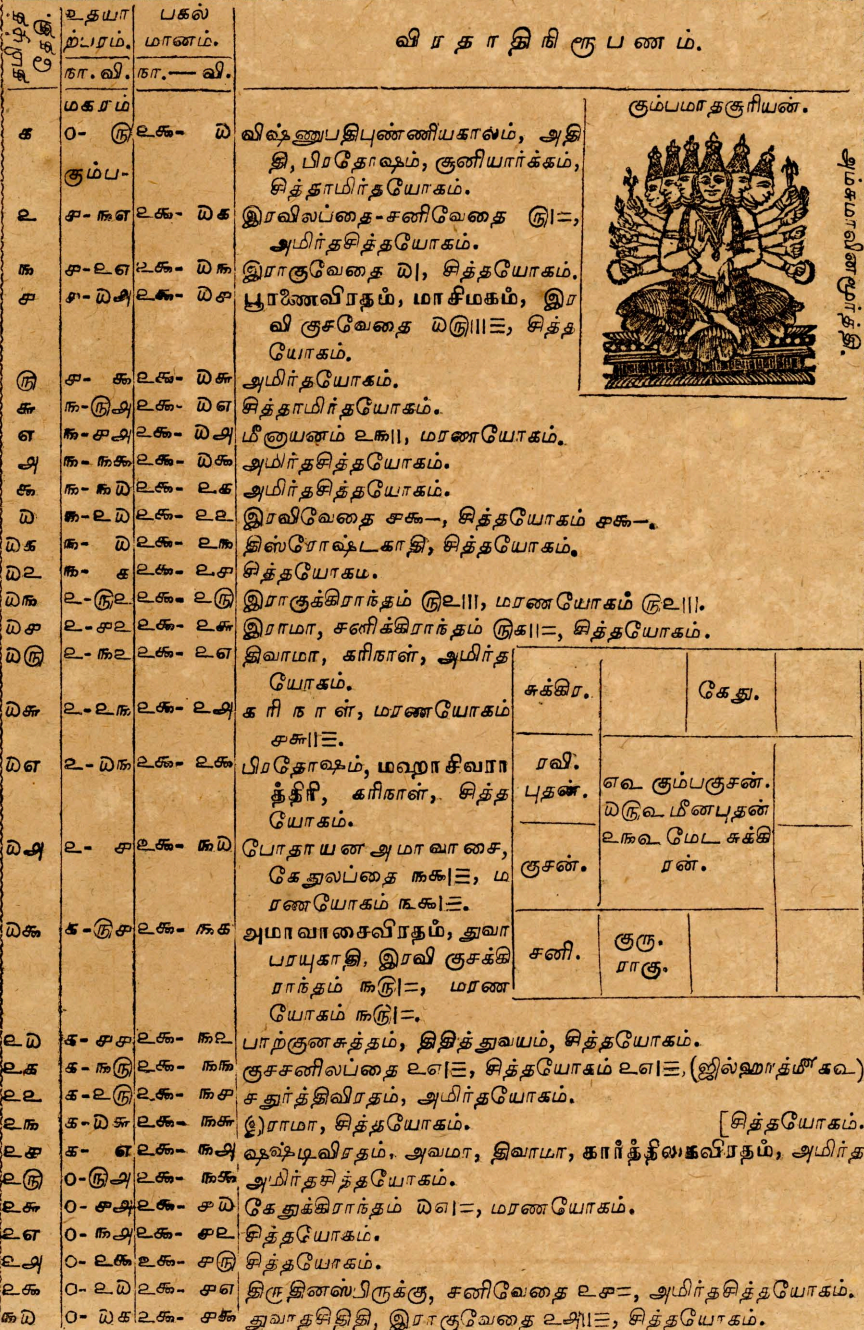 தமிழ்த் தேதி. உதயா பகல்
ற்பரம். மானம். விரதாதிநிரூபணம்.
நா. வி. நா.— வி.
மகரம்
கும்பமாதசூரியன்.
அம்சுமாலினமூர்த்தி.
௧ ௦- ௫ ௨௯- ௰ விஷ்ணுபதிபுண்ணியகாலம், அதி
தி, பிரதோஷம், சூனியார்க்கம்,
கும்ப-
சித்தாமிர்தயோகம்.
௨ ௪-௩௭ ௨௯- ௰௧ இரவிலப்தை-சனிவேதை ௫|=,
அமிர்தசித்தயோகம்.
௩ ௪-௨௭ ௨௯- ௰௩ இராகுவேதை ௰|, சித்தயோகம்.
௪ ௪-௰௮ ௨௯- ௰௪ பூரணைவிரதம், மாசிமகம், இர
வி குசவேதை ௰௫|||☰, சித்த
யோகம்.
௫ ௪- ௯ ௨௯- ௰௬ அமிர்தயோகம்.
௬ ௩-௫௮ ௨௯- ௰௭ சித்தாமிர்தயோகம்.
௭ ௩-௪௮ ௨௯- ௰௮ மீனாயனம் ௨௩||, மரணயோகம்.
௮ ௩-௩௯ ௨௯- ௰௯ அமிர்தசித்தயோகம்.
௯ ௩-௩௰ ௨௯- ௨௧ அமிர்தசித்தயோகம்.
௰ ௩-௨௰ ௨௯- ௨௨ இரவிவேதை ௪௯–, சித்தயோகம் ௪௯–.
௰௧ ௩- ௰ ௨௯- ௨௩ திஸ்ரோஷ்டகாதி, சித்தயோகம்.
௰௨ ௩- ௧ ௨௯- ௨௪ சித்தயோகம.
௰௩ ௨-௫௨ ௨௯- ௨௫ இராகுக்கிராந்தம் ௫௨|||, மரணயோகம் ௫௨|||.
௰௪ ௨-௪௨ ௨௯- ௨௬ இராமா, சனிக்கிராந்தம் ௫௧||=, சித்தயோகம்.
௰௫ ௨-௩௨ ௨௯- ௨௭ திவாமா, கரிநாள், அமிர்த
யோகம்.
௰௬ ௨-௨௩ ௨௯- ௨௮ கரிநாள், மரணயோகம்
௪௬||☰.
௰௭ ௨-௰௩ ௨௯- ௨௯ பிரதோஷம், மஹாசிவரா
த்திரி, கரிநாள், சித்த
யோகம்.
௰௮ ௨- ௪ ௨௯- ௩௰ போதாயன அமாவாசை,
கேதுலப்தை ௩௯|☰, ம
ரணயோகம் ௩௯|☰.
௰௯ ௧-௫௪ ௨௯- ௩௧ அமாவாசைவிரதம், துவா
பரயுகாதி, இரவி குசக்கி
ராந்தம் ௩௫|=, மரண
யோகம் ௩௫|=.
சுக்கிர. கேது.
ரவி.
புதன்.
௭உ கும்பகுசன்.
௰௫உ மீனபுதன்
௨௩உ மேட சுக்கி
ரன்.
குசன்.
சனி. குரு.
ராகு.
௨௰ ௧-௪௪ ௨௯- ௩௨ பாற்குனசுத்தம், திதித்துவயம், சித்தயோகம்.
௨௧ ௧-௩௫ ௨௯- ௩௩ குசசனிலப்தை ௨௭|☰, சித்தயோகம் ௨௭|☰, (ஜில்ஹாத்மீ௴ ௧உ)
௨௨ ௧-௨௫ ௨௯- ௩௪ சதுர்த்திவிரதம், அமிர்தயோகம்.
௨௩ ௧-௰௬ ௨௯- ௩௬ இராமா, சித்தயோகம். [சித்தயோகம்.
௨௪ ௧- ௭ ௨௯- ௩௮ ஷஷ்டிவிரதம், அவமா, திவாமா, கார்த்திகைவிரதம், அமிர்த
௨௫ ௦-௫௮ ௨௯- ௩௯ அமிர்தசித்தயோகம்.
௨௬ ௦-௪௮ ௨௯- ௪௰ கேதுக்கிராந்தம் ௰௭|=, மரணயோகம்.
௨௭ ௦-௩௮ ௨௯- ௪௨ சித்தயோகம்.
௨௮ ௦-௨௯ ௨௯- ௪௫ சித்தயோகம்.
௨௯ ௦-௨௰ ௨௯- ௪௭ திருதினஸ்பிருக்கு, சனிவேதை ௨௪=, அமிர்தசித்தயோகம்.
௩௰ ௦-௰௧ ௨௯- ௪௯ துவாதசிதிதி, இராகுவேதை ௨௮||☰, சித்தயோகம்.